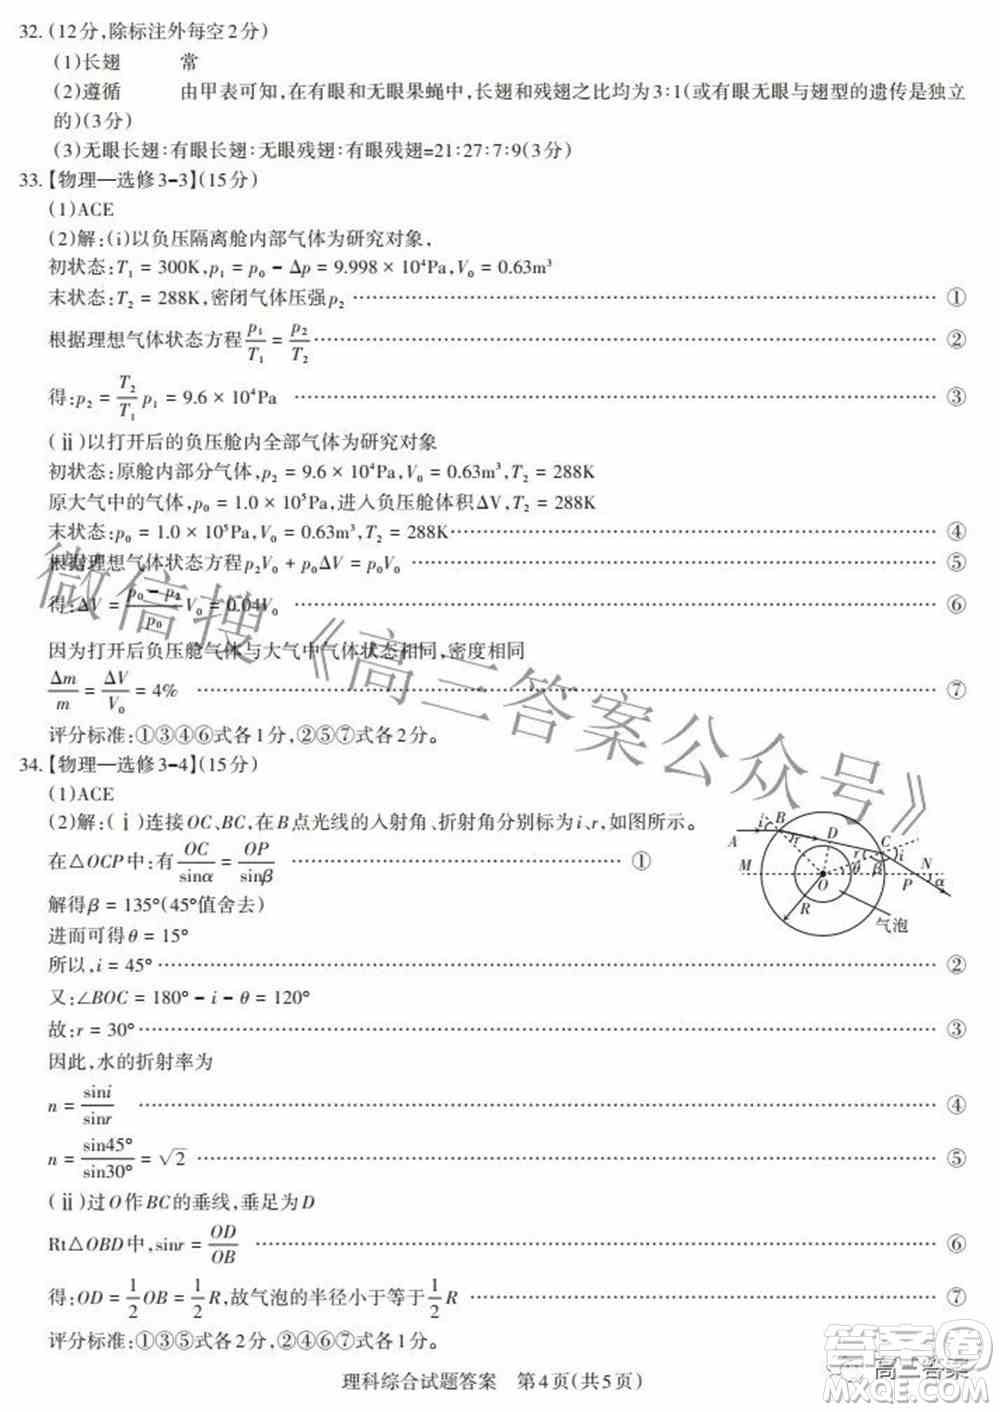 32.(12分,除标注外每空2分)
(1)长翅 常
(2)遵循 由甲表可知,在有眼和无眼果蝇中,长翅和残翅之比均为3:1(或有眼无眼与翅型的遗传是独立
的)(3分)
(3)无眼长翅:有眼长翅:无眼残翅:有眼残翅=21:27:7:9(3分)
33.【物理—选修3-3】(15分)
(1)ACE
(2)解:(i)以负压隔离舱内部气体为研究对象,
初状态:T₁ = 300K,p₁ = p₀ − Δp = 9.998 × 10⁴Pa,V₀ = 0.63m³
末状态:T₂ = 288K,密闭气体压强p₂ …… ①
根据理想气体状态方程p₁/T₁ = p₂/T₂ …… ②
得:p₂ = T₂/T₁ p₁ = 9.6 × 10⁴Pa …… ③
(ⅱ)以打开后的负压舱内全部气体为研究对象
初状态:原舱内部分气体,p₂ = 9.6 × 10⁴Pa,V₀ = 0.63m³,T₂ = 288K
原大气中的气体,p₀ = 1.0 × 10⁵Pa,进入负压舱体积ΔV,T₂ = 288K
末状态:p₀ = 1.0 × 10⁵Pa,V₀ = 0.63m³,T₂ = 288K …… ④
根据理想气体状态方程p₂V₀ + p₀ΔV = p₀V₀ …… ⑤
得:ΔV = (p₀ − p₂)/p₀ V₀ = 0.04V₀ …… ⑥
因为打开后负压舱气体与大气中气体状态相同,密度相同
Δm/m = ΔV/V₀ = 4% …… ⑦
评分标准:①③④⑥式各1分,②⑤⑦式各2分。
34.【物理—选修3-4】(15分)
(1)ACE
(2)解:(ⅰ)连接OC、BC,在B点光线的入射角、折射角分别标为i、r,如图所示。
在△OCP中:有OC/sinα = OP/sinβ …… ①
解得β = 135°(45°值舍去)
进而可得θ = 15°
所以,i = 45° …… ②
又:∠BOC = 180° − i − θ = 120°
故:r = 30° …… ③
因此,水的折射率为
n = sini/sinr …… ④
n = sin45°/sin30° = √2 …… ⑤
(ⅱ)过O作BC的垂线,垂足为D
Rt△OBD中,sinr = OD/OB …… ⑥
得:OD = 1/2 OB = 1/2 R,故气泡的半径小于等于1/2 R …… ⑦
评分标准:①③⑤式各2分,②④⑥⑦式各1分。
理科综合试题答案 第4页(共5页)
A i B D C i r r
M O θ β P N α
R 气泡
微信搜《高三答案公众号》
高三答案
答案圈
MXQE.COM